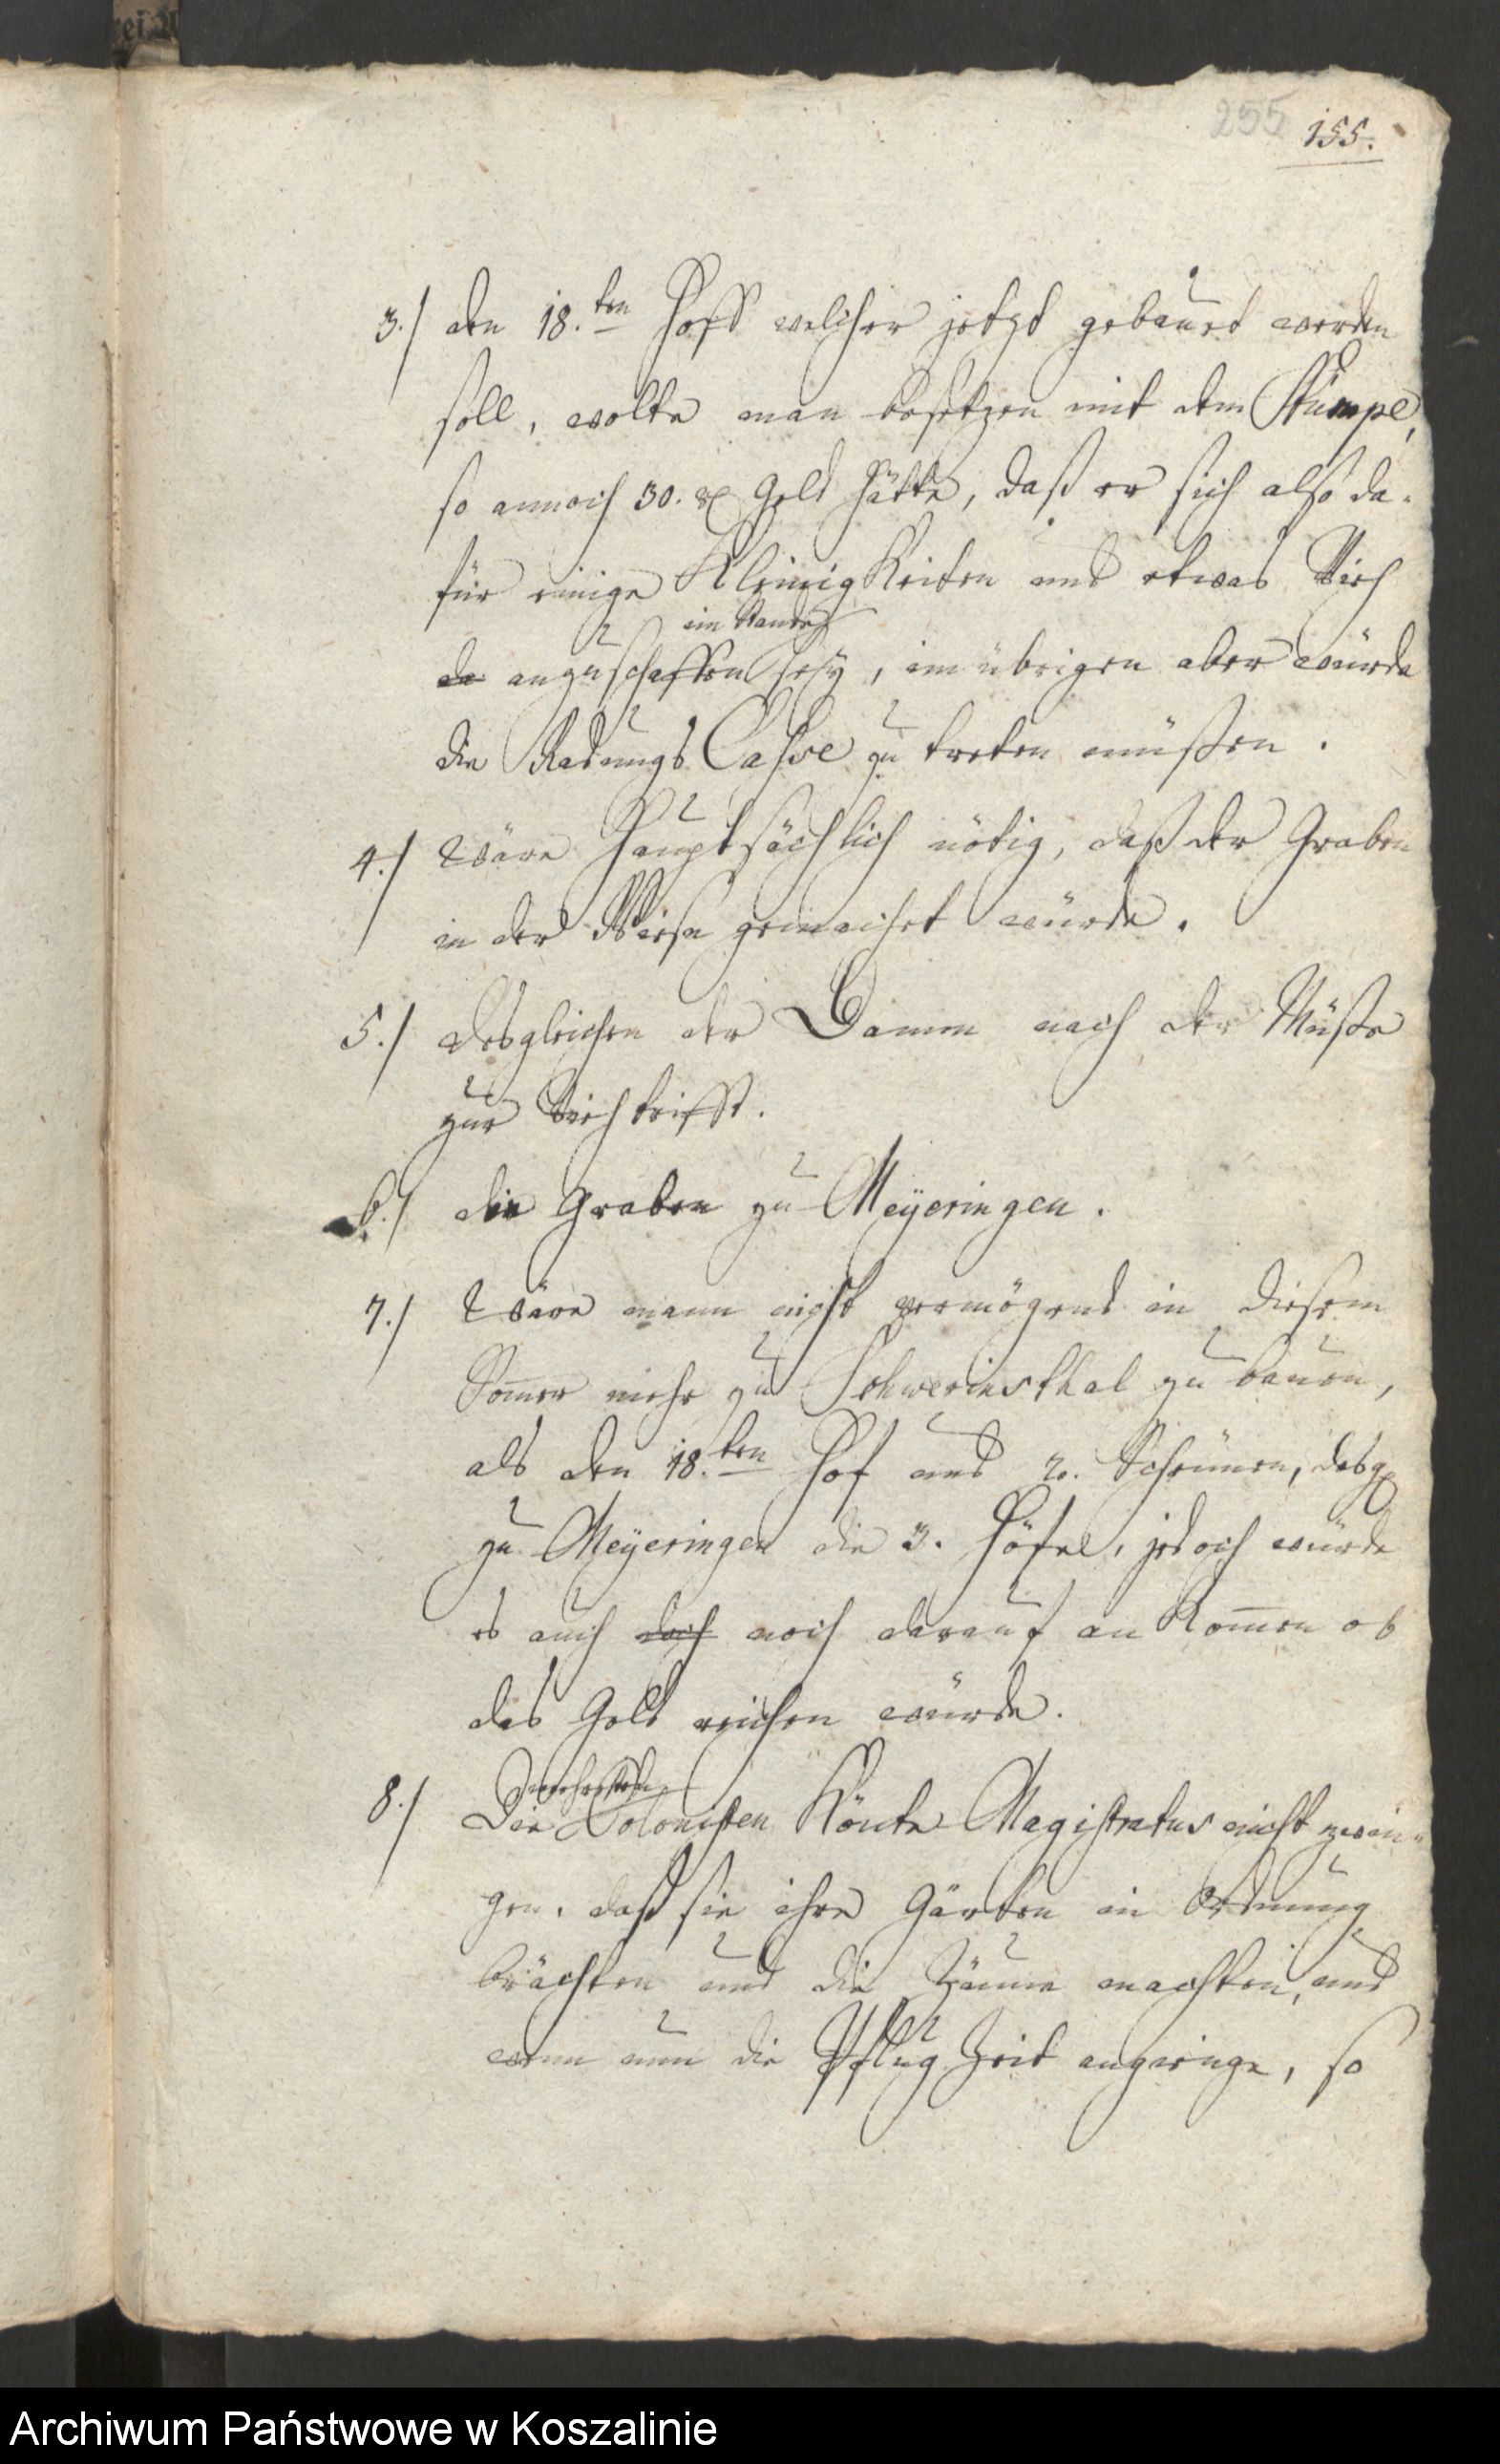 255 155.
3./ den 18.ten Hoff welcher jetzt gebauet werden
soll, wolte man besetzen mit dem Stümpe,
so annoch 30. rl Geld hätte, daß er sich also da-
für einige Kleinigkeiten und etwas Vieh
im Stande
da anzuschaffen sey, im übrigen aber würde
die Radungs Casse zu treten müßen.
4./ Wäre hauptsächlich nötig, daß der Graben
in der Wiese gemachet würde.
5./ desgleichen der Damm nach der Müsse
zur Viehtrifft.
6./ die Graben zu Meyeringen.
7./ Wäre mann nicht vermögend in diesem
Sommer mehr zu Schwerinsthal zu bauen,
als den 18.ten Hof und 2. Scheunen, desgl
zu Meyeringen die 3. Höfe, jedoch würde
es auch doch noch darauf an kommen ob
das Geld reichen würde.
8./ Die Colonisten könte Magistratus nicht zwin-
gen, daß sie ihre Gärten in Ordnung
brächten und die Zäune machten, und
wenn nun die Pflug Zeit anginge, so
Archiwum Państwowe w Koszalinie